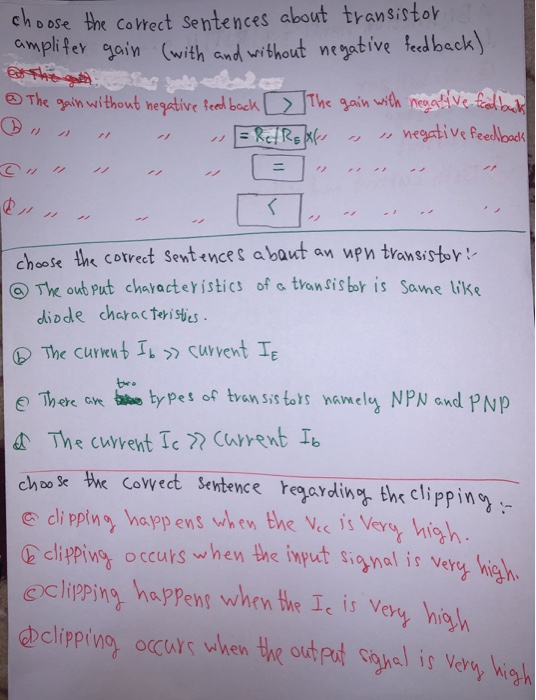 choose the correct sentences about transistor
amplifer gain (with and without negative feedback)
ⓐ The gain without negative feed back > The gain with negative feedback
ⓑ " " " " " = Rc/RE X( " " " negative feedback
ⓒ " " " " " = " " " " "
ⓓ " " " " " < " " " " "
choose the correct sentences about an npn transistor:-
ⓐ The output characteristics of a transistor is same like
diode characteristics.
ⓑ The current Ib >> current IE
ⓒ There are two types of transistors namely NPN and PNP
ⓓ The current Ic >> current Ib
choose the correct sentence regarding the clipping:-
ⓐ clipping happens when the Vcc is very high.
ⓑ clipping occurs when the input signal is very high.
ⓒ clipping happens when the Ic is very high
ⓓ clipping occurs when the output signal is very high